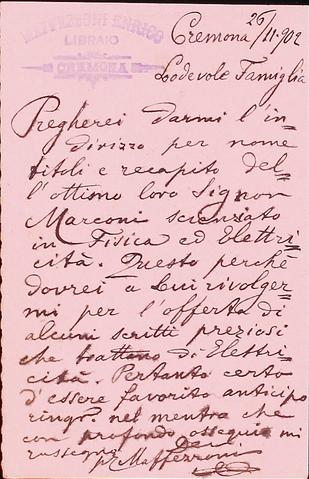 MAFFEZZONI ENRICO
LIBRAIO
CREMONA
Cremona 26/11.902
Lodevole Famiglia
Pregherei darmi l'in=
dirizzo per nome
titoli e recapito del=
l'ottimo loro Signor
Marconi scienziato
in Fisica ed Elettri=
cità. Questo perchè
dovrei a Lui rivolger=
mi per l'offerta di
alcuni scritti preziosi
che trattano di Elettri=
cità. Pertanto certo
d'essere favorito anticipo
ringr. nel mentre che
con profondo ossequio mi
rassegno
Maffezzoni